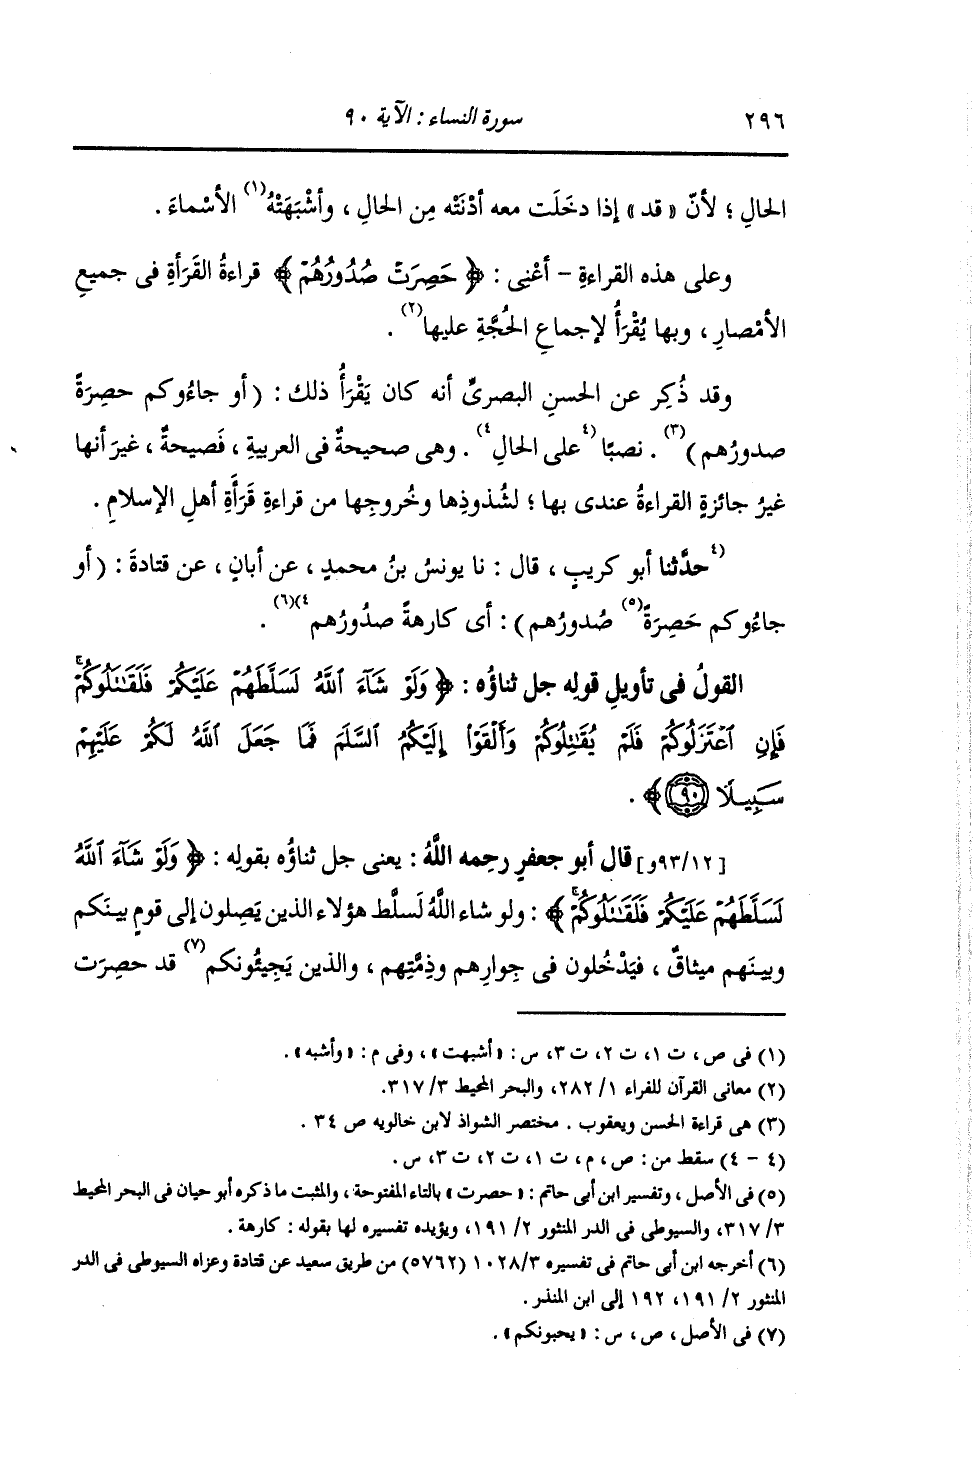 ٢٩٦
سورة النساء : الآية ٩٠
الحالِ ؛ لأنّ « قد » إذا دخَلَت معه أدْنَتْه مِن الحالِ ، وأشْبَهَتْهُ(١) الأسْماءَ .
وعلى هذه القراءةِ - أعْنِى : ﴿ حَصِرَتْ صُدُورُهُمْ ﴾ قراءةُ القَرَأةِ فى جميعِ
الأمْصارِ ، وبها يُقْرَأُ لإجماعِ الحُجَّةِ عليها(٢) .
وقد ذُكِر عن الحسنِ البصرىِّ أنه كان يَقْرَأُ ذلك : ( أو جاءُوكم حصِرَةً
صدورُهم )(٣) . نصبًا (٤على الحالِ٤) . وهى صحيحةٌ فى العربيةِ ، فَصيحةٌ ، غيرَ أنها
غيرُ جائزةٍ القراءةُ عندى بها ؛ لشُذوذِها وخُروجِها من قراءةِ قَرَأَةِ أهلِ الإسلامِ .
(٤حدَّثنا أبو كريبٍ ، قال : نا يونسُ بنُ محمدٍ ، عن أبانٍ ، عن قتادةَ : ( أو
جاءُوكم حَصِرَةً(٥) صُدورُهم ) : أى كارهةً صدُورُهم٤)(٦) .
القولُ فى تأويلِ قولِه جل ثناؤُه : ﴿ وَلَوْ شَآءَ ٱللَّهُ لَسَلَّطَهُمْ عَلَيْكُمْ فَلَقَـٰتَلُوكُمْۚ
فَإِنِ ٱعْتَزَلُوكُمْ فَلَمْ يُقَـٰتِلُوكُمْ وَأَلْقَوْا۟ إِلَيْكُمُ ٱلسَّلَمَ فَمَا جَعَلَ ٱللَّهُ لَكُمْ عَلَيْهِمْ
سَبِيلًا ٩٠ ﴾ .
[ ٩٣/١٢و ] قال أبو جعفرٍ رحِمه اللَّهُ : يعنى جل ثناؤُه بقولِه : ﴿ وَلَوْ شَآءَ ٱللَّهُ
لَسَلَّطَهُمْ عَلَيْكُمْ فَلَقَـٰتَلُوكُمْۚ ﴾ : ولو شاء اللَّهُ لَسلَّط هؤلاء الذين يَصِلون إلى قومٍ بينَكم
وبينَهم ميثاقٌ ، فيَدْخُلون فى جِوارِهم وذِمَّتِهم ، والذين يَجِيئُونكم(٧) قد حصِرَت
(١) فى ص ، ت ١، ت ٢، ت ٣، س : « أشبهت » ، وفى م : « وأشبه » .
(٢) معانى القرآن للفراء ١/ ٢٨٢، والبحر المحيط ٣/ ٣١٧.
(٣) هى قراءة الحسن ويعقوب . مختصر الشواذ لابن خالويه ص ٣٤ .
(٤ - ٤) سقط من : ص ، م ، ت ١، ت ٢، ت ٣، س .
(٥) فى الأصل ، وتفسير ابن أبى حاتم : « حصرت » بالتاء المفتوحة ، والمثبت ما ذكره أبو حيان فى البحر المحيط
٣/ ٣١٧، والسيوطى فى الدر المنثور ٢/ ١٩١، ويؤيده تفسيره لها بقوله : كارهة .
(٦) أخرجه ابن أبى حاتم فى تفسيره ١٠٢٨/٣ (٥٧٦٢) من طريق سعيد عن قتادة وعزاه السيوطى فى الدر
المنثور ٢/ ١٩١، ١٩٢ إلى ابن المنذر .
(٧) فى الأصل ، ص ، س : « يحبونكم » .